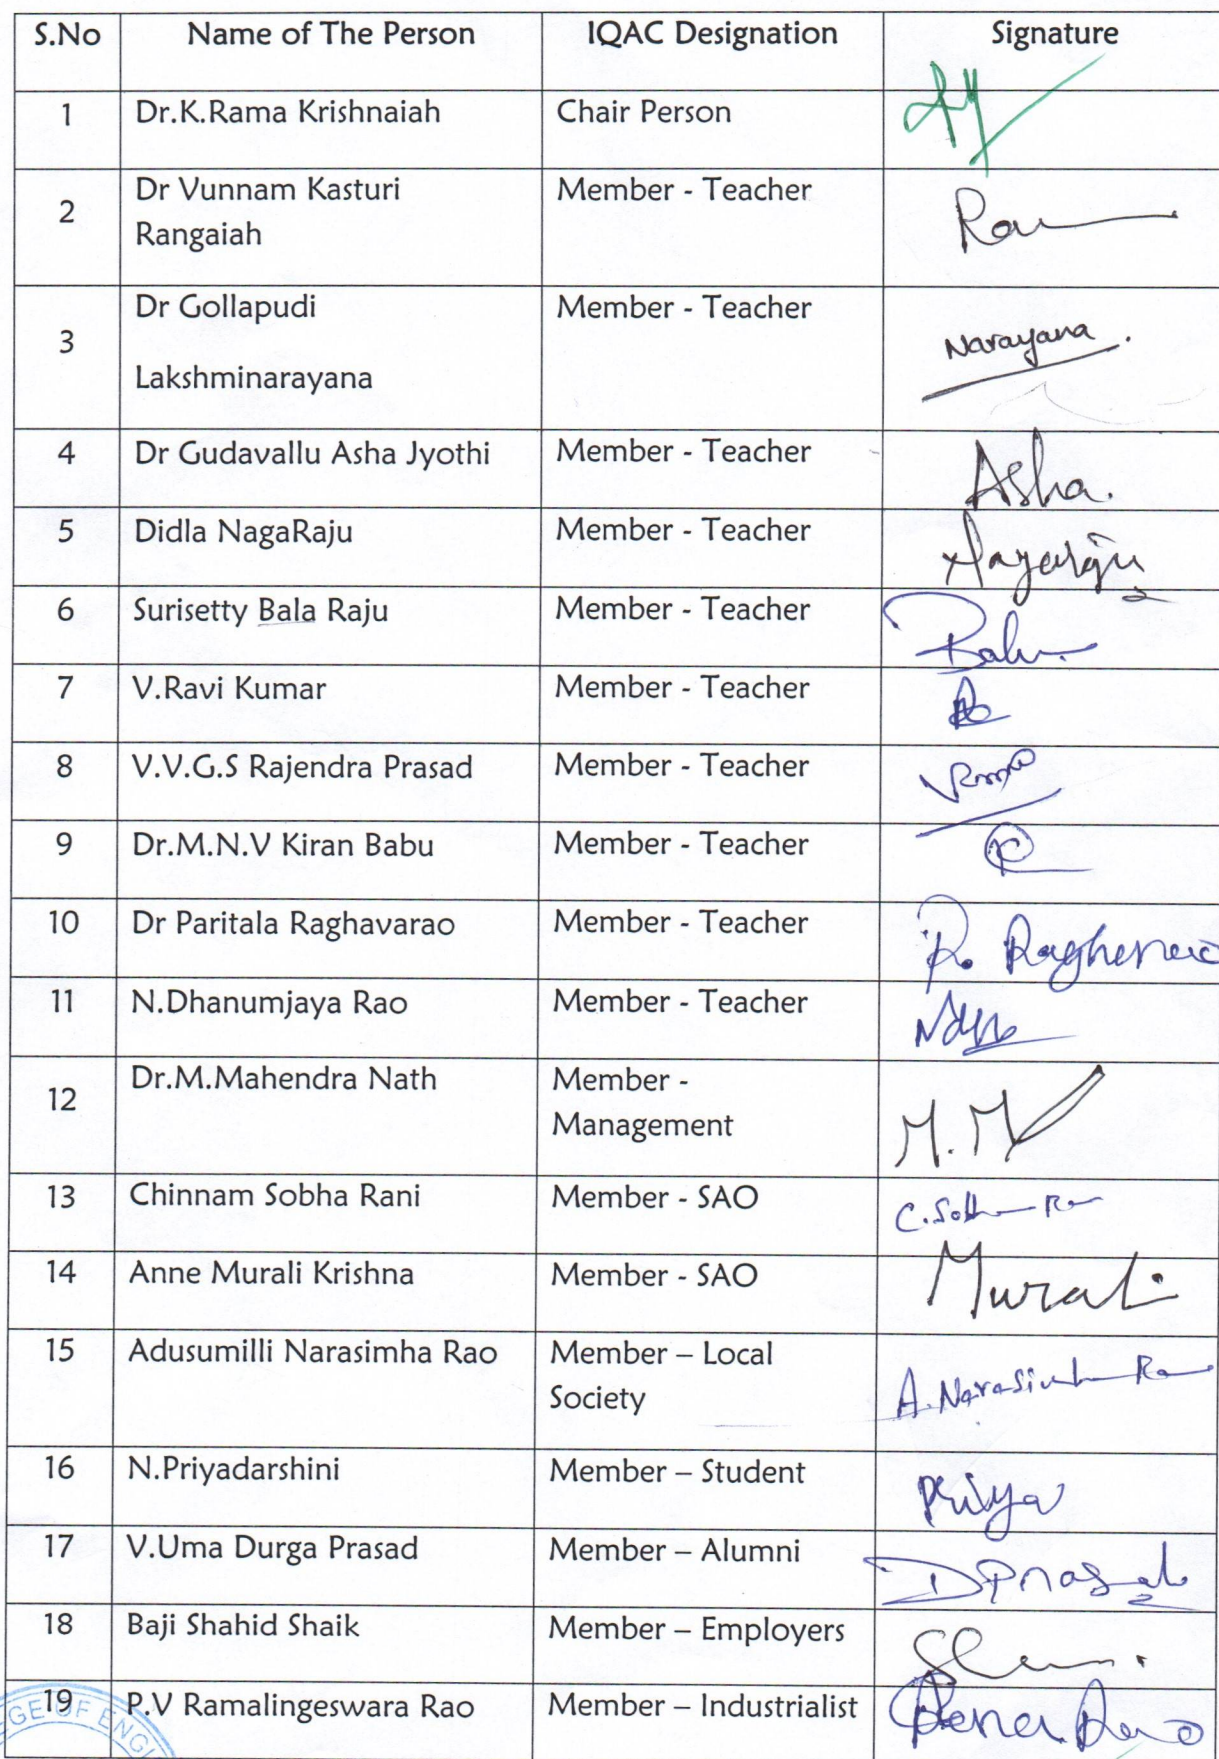 S.No Name of The Person IQAC Designation Signature
1 Dr.K.Rama Krishnaiah Chair Person
2 Dr Vunnam Kasturi Member - Teacher
Rangaiah
3 Dr Gollapudi Member - Teacher Narayana.
Lakshminarayana
4 Dr Gudavallu Asha Jyothi Member - Teacher Asha.
5 Didla NagaRaju Member - Teacher Nagaraju
6 Surisetty Bala Raju Member - Teacher
7 V.Ravi Kumar Member - Teacher
8 V.V.G.S Rajendra Prasad Member - Teacher
9 Dr.M.N.V Kiran Babu Member - Teacher
10 Dr Paritala Raghavarao Member - Teacher
11 N.Dhanumjaya Rao Member - Teacher
12 Dr.M.Mahendra Nath Member - M.M
Management
13 Chinnam Sobha Rani Member - SAO
14 Anne Murali Krishna Member - SAO Murali
15 Adusumilli Narasimha Rao Member – Local A.Narasimha Rao
Society
16 N.Priyadarshini Member – Student Priya
17 V.Uma Durga Prasad Member – Alumni D Prasad
18 Baji Shahid Shaik Member – Employers
19 P.V Ramalingeswara Rao Member – Industrialist
GE OF ENGI